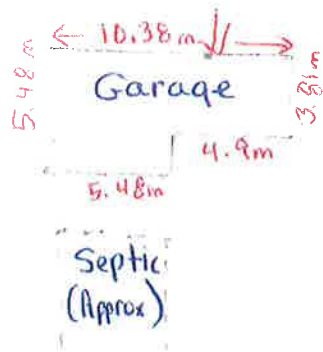 10.38m
5.48m
Garage
3.81m
4.9m
5.48m
Septic
(Approx)